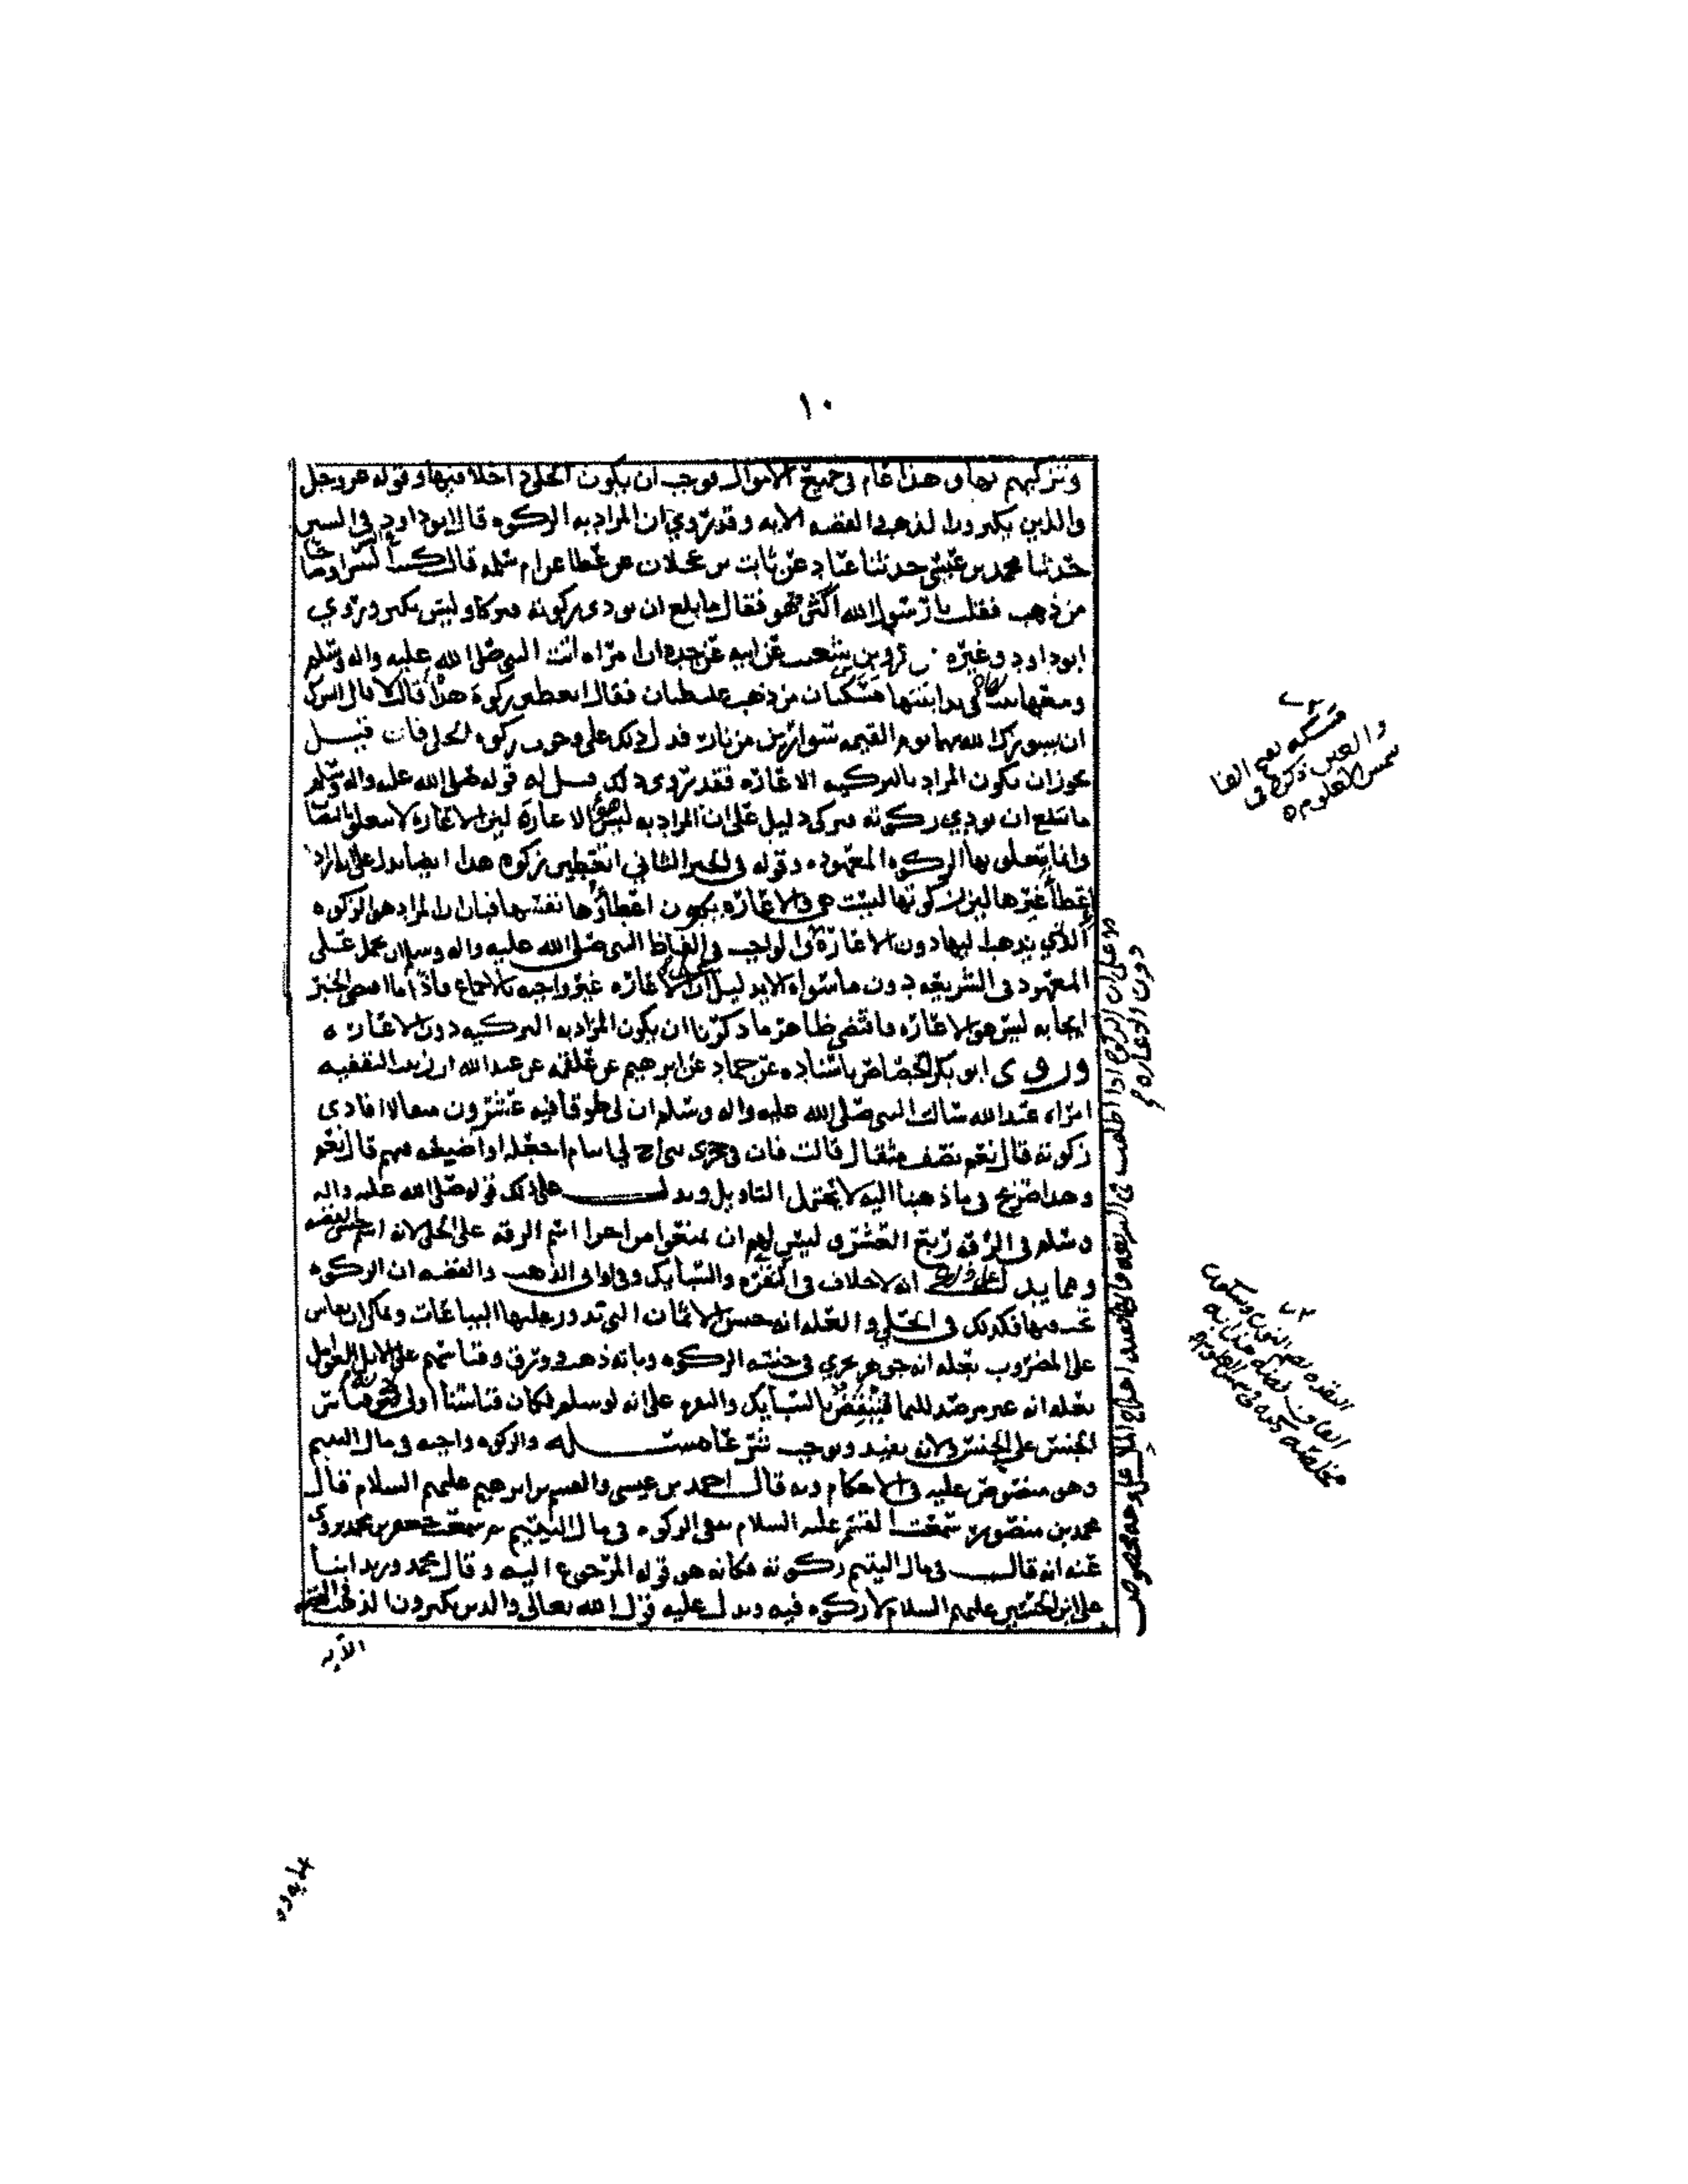 ١٠
وتزكيهم بها وهذا عام في جميع الأموال فوجب ان يكون الحلي داخلا فيها وقوله عز وجل
والذين يكنزون الذهب والفضه الآيه وقد روي ان المراد به الزكوه قال ابو داود في السنن
حدثنا محمد بن عيسى حدثنا عتاب عن ثابت بن عجلان عن عطا عن ام سلمه قالت كنت البس اوضاحا
من ذهب فقلت يا رسول الله أكنز هو فقال ما بلغ ان تودى زكوته فزكا وليس بكنز وروي
ابو داود وغيره عن عمرو بن شعيب عن ابيه عن جده ان امرأه اتت النبي صلى الله عليه واله وسلم
ومعها ابنتها في يد ابنتها مسكتان من ذهب غليظتان فقال اتعطين زكوة هذا قالت لا قال ايسرك
ان يسورك الله بهما يوم القيمه سوارين من نار فدل ذلك على وجوب زكوه الحلي فان قيل
يجوز ان يكون المراد بالتزكيه الاعاره فقد روي ذلك قيل له قوله صلى الله عليه واله وسلم
ما بلغ ان يودي زكوته فزكى دليل على ان المراد به ليس هو الاعارة لان الاعارة لا تتعلق بالنصاب
وانما يتعلق بها الزكوه المعهوده وقوله في الخبر الثاني اتعطين زكوه هذا ايضا يدل على انه اراد
اعطأ غيرها لان زكوتها ليست هي والاعاره يكون اعطاؤها نفسها فبان ان المراد هو الزكوه
الذي يذهب اليها دون الاعارة والواجب في الفاظ النبي صلى الله عليه واله وسلم ان يحمل على
المعهود في الشريعه دون ما سواه الا بدليل ان الاعاره غير واجبه بالاجماع فاذا ما اقتضى الخبر
ايجابه ليس هو الاعاره فاقتضى ظاهر ما ذكرنا ان يكون المراد به التزكيه دون الاعاره
وروى ابو بكر الجصاص باسناده عن حماد عن ابرهيم عن علقمه عن عبد الله ان زينب الثقفيه
امراه عبد الله سالت النبي صلى الله عليه واله وسلم ان لي طوقا فيه عشرون مثقالا افادى
زكوته قال نعم نصف مثقال قالت فان في حجرى بنى اخ لي ايتام افاجعله او اضعه فيهم قال نعم
وهذا صريح في ما ذهبنا اليه لا يحتمل التاويل ويدل على ذلك قوله صلى الله عليه واله
وسلم في الرقه ربع العشر و ليس لهم ان يمنعوا من اجرا اسم الرقه على الحلي لانه اسم لجنس الفضه
ومما يدل على ذلك انه لا خلاف في النقره والسبايك وفي اواني الذهب والفضه ان الزكوه
تجب فيها فكذلك في الحلي والعله انه جنس الاثمان التي تدور عليها البياعات ويمكن ان يقاس
على المضروب بعله انه جوهر يجري في جنسه الزكوه وبانه ذهب وورق وقياسهم على الابل العوامل
بعله انه غير مرصد للنما فينتقض بالسبايك والنقره على انه لو سلم لكان قياسنا اولى لانه قياس
الجنس على الجنس ولانه يفيد ويوجب شرعا مسئله والزكوه واجبه في مال اليتيم
وهو منصوص عليه في الاحكام وبه قال احمد بن عيسى والقسم بن ابرهيم عليهم السلام قال
محمد بن منصور سمعت القسم عليه السلام يقول الزكوه في مال اليتيم ثم سمعت جعفر بن محمد يروي
عنه انه قال في مال اليتيم زكوته فكانه هو قوله المرجوع اليه وقال محمد وزيد ابنا
علي بن الحسين عليهم السلام لا زكوه فيه ويدل عليه قول الله تعالى والذين يكنزون الذهب والفضه
الآيه
مسكه بفتح الفا
والعين ذكره في
شمس العلوم
دون الاعاره
النقره بضم النون وسكون
القاف